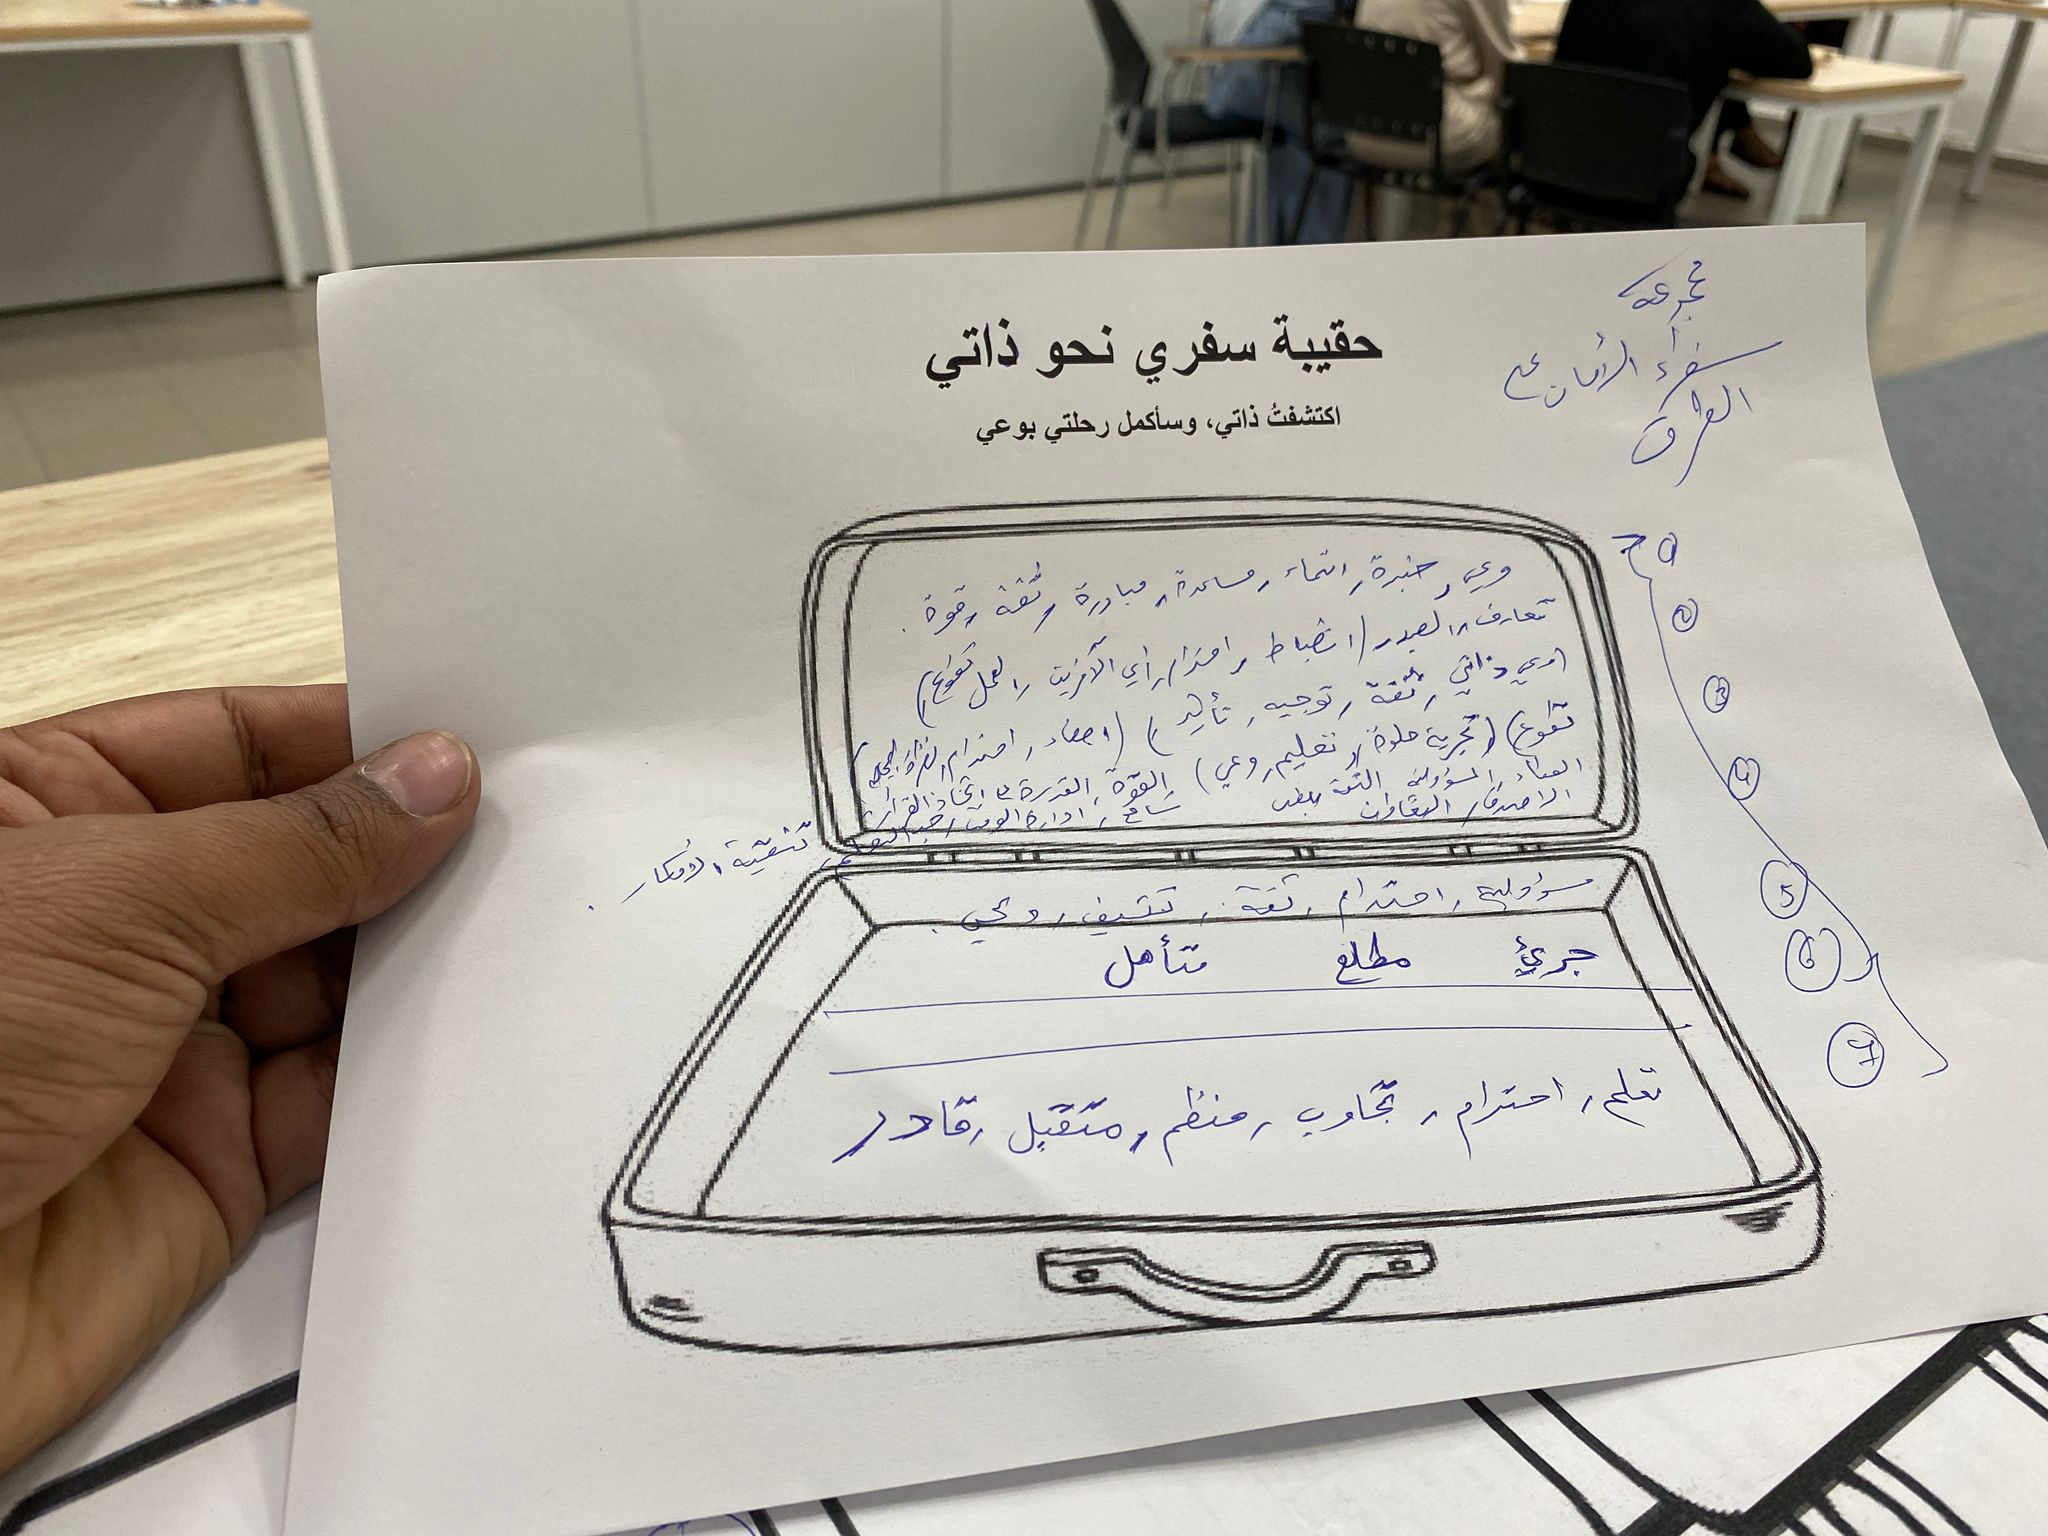 حقيبة سفري نحو ذاتي
اكتشفتُ ذاتي، وسأكمل رحلتي بوعي
مجموعة
سفراء الأمان على
الطرق
وعي، خبرة، انتماء، مساعدة، مبادرة، ثقة، قوة.
تعارف، الصبر (انضباط، احترام راي الآخرين، العمل تطوع)
(وعي ذاتي، ثقة، توجيه، تأثير) (اصغاء، احترام
تطوع) (تجربة حلوة، تعليم، وعي) القوة، القدرة على اتخاذ القرار
العطاء، المسؤولية الثقة بالنفس تسامح، ادارة الوقت، حب التعلم، تنقية الأفكار.
الاصدقاء، التعاون
مسؤولية، احترام، ثقة، تثقيف، وعي.
جريئ مطلع متأهل
تعلم، احترام، تجاوب، منظم، متقبل، قادر
1
2
3
4
5
6
7